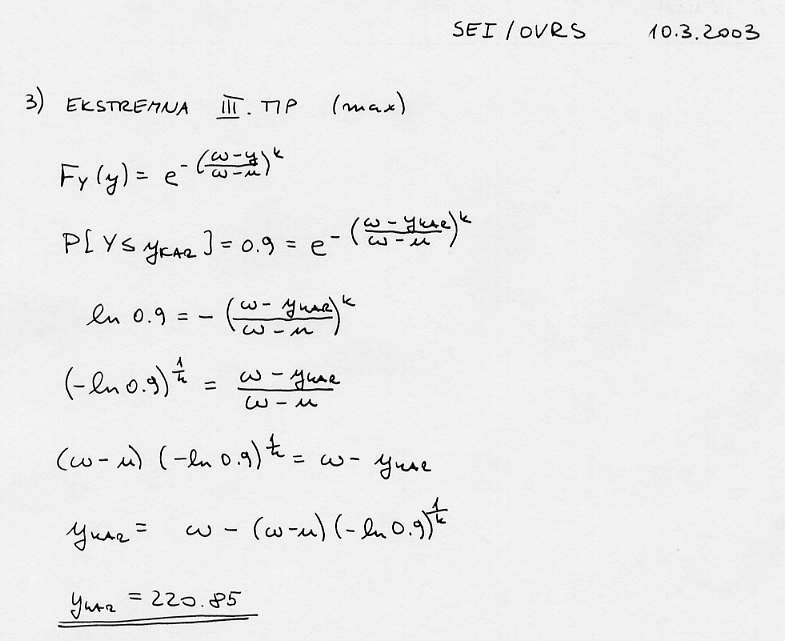 SEI / OVRS 10.3.2003
3) EKSTREMNA III. TIP (max)
F_Y(y) = e^{-((ω-y)/(ω-u))^k}
P[Y ≤ y_{KAR}] = 0.9 = e^{-((ω-y_{KAR})/(ω-u))^k}
ln 0.9 = -((ω-y_{KAR})/(ω-u))^k
(-ln 0.9)^{1/k} = (ω-y_{KAR})/(ω-u)
(ω-u) (-ln 0.9)^{1/k} = ω - y_{KAR}
y_{KAR} = ω - (ω-u) (-ln 0.9)^{1/k}
y_{KAR} = 220.85